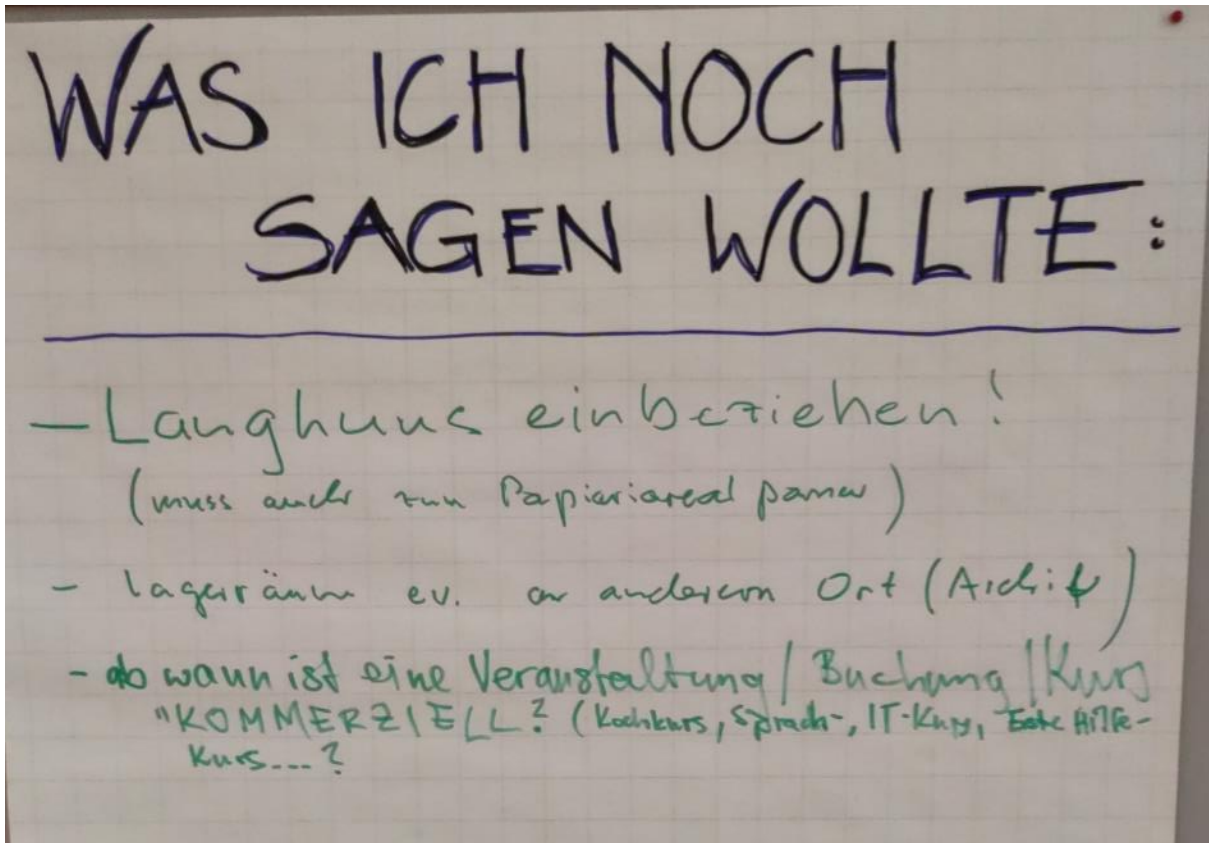 WAS ICH NOCH
SAGEN WOLLTE:
- Langhuus einbeziehen!
(muss auch zum Papieriareal passen)
- Lagerräume ev. an anderem Ort (Archiv)
- ab wann ist eine Veranstaltung / Buchung / Kurs
"KOMMERZIELL? (Kochkurs, Sprach-, IT-Kurs, Erste Hilfe-
Kurs...?